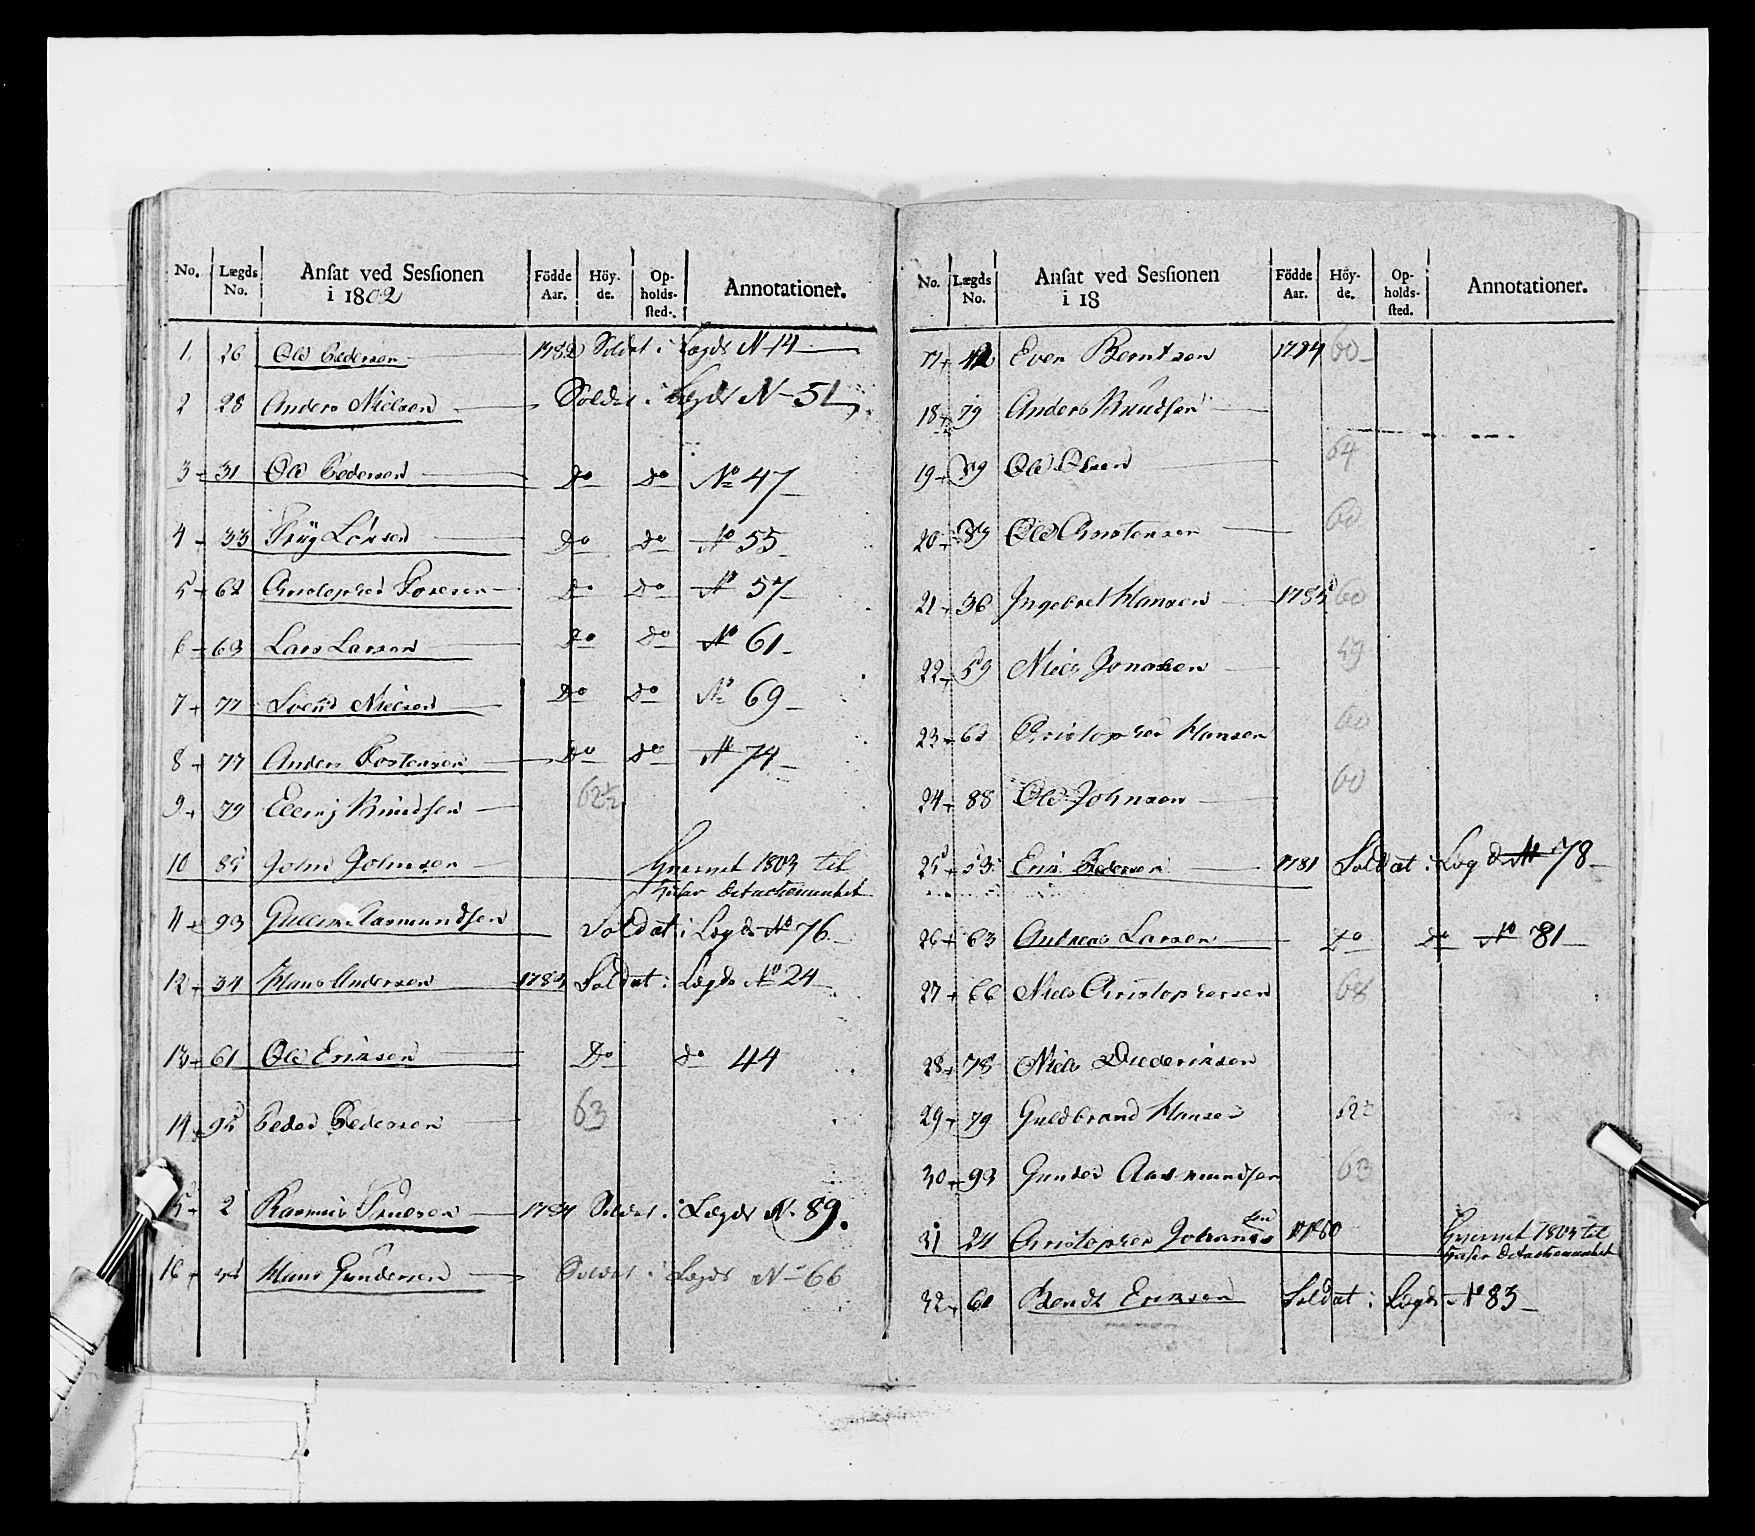 No. Lægds No. Ansat ved Sessionen i 1802 Födde Aar. Höy-de. Op-holds-sted. Annotationer.
1. 26 Ole Pedersen 1782 Soldat i Lægds No 14
2 28 Anders Nielsen Soldat i Lægds No 51
3 31 Ole Pedersen Do Do No 47
4 33 Do Do No 55
5 62 Christopher Do Do No 57
6 63 Lars Larsen Do Do No 61
7 77 Svend Nielsen Do Do No 69
8 77 Anders Tostensen Do Do No 74
9 79 Knudsen 62½
10 85 John Johnsen 1803 til
detachementet
11 93 Aasmundsen Soldat i Lægds No 76
12 34 Hans Andersen Soldat i Lægds No 24
13 61 Ole Eriksen Do do 44
14 95 Peder Pedersen 63
15 2 Rasmus Soldat i Lægds No 89.
16 Hans Gundersen Soldat i Lægds No 66
No. Lægds No. Ansat ved Sessionen i 18 Födde Aar. Höy-de. Op-holds-sted. Annotationer.
17 42 Even Berntsen 1784 60
18 79 Anders Knudsen
19 79 Ole Olsen 64
20 89 Ole Christensen 60
21 36 Ingebret Hansen 1785 60
22 59 Niels Jonassen 59
23 62 Christopher Hansen 60
24 88 Ole Johnsen 60
25 53 Erik Pedersen 1781 Soldat i Lægds No 78
26 63 Andreas Larsen Do Do No 81
27 66 Niels Christophersen 68
28 78 Niels Diederiksen
29 79 Guldbrand Hansen 62
30 93 Gunder Aasmundsen 63
31 24 Christopher Johannessen 1780 1803 til
detachementet
32 60 Bendt Eriksen Soldat i Lægds No 83